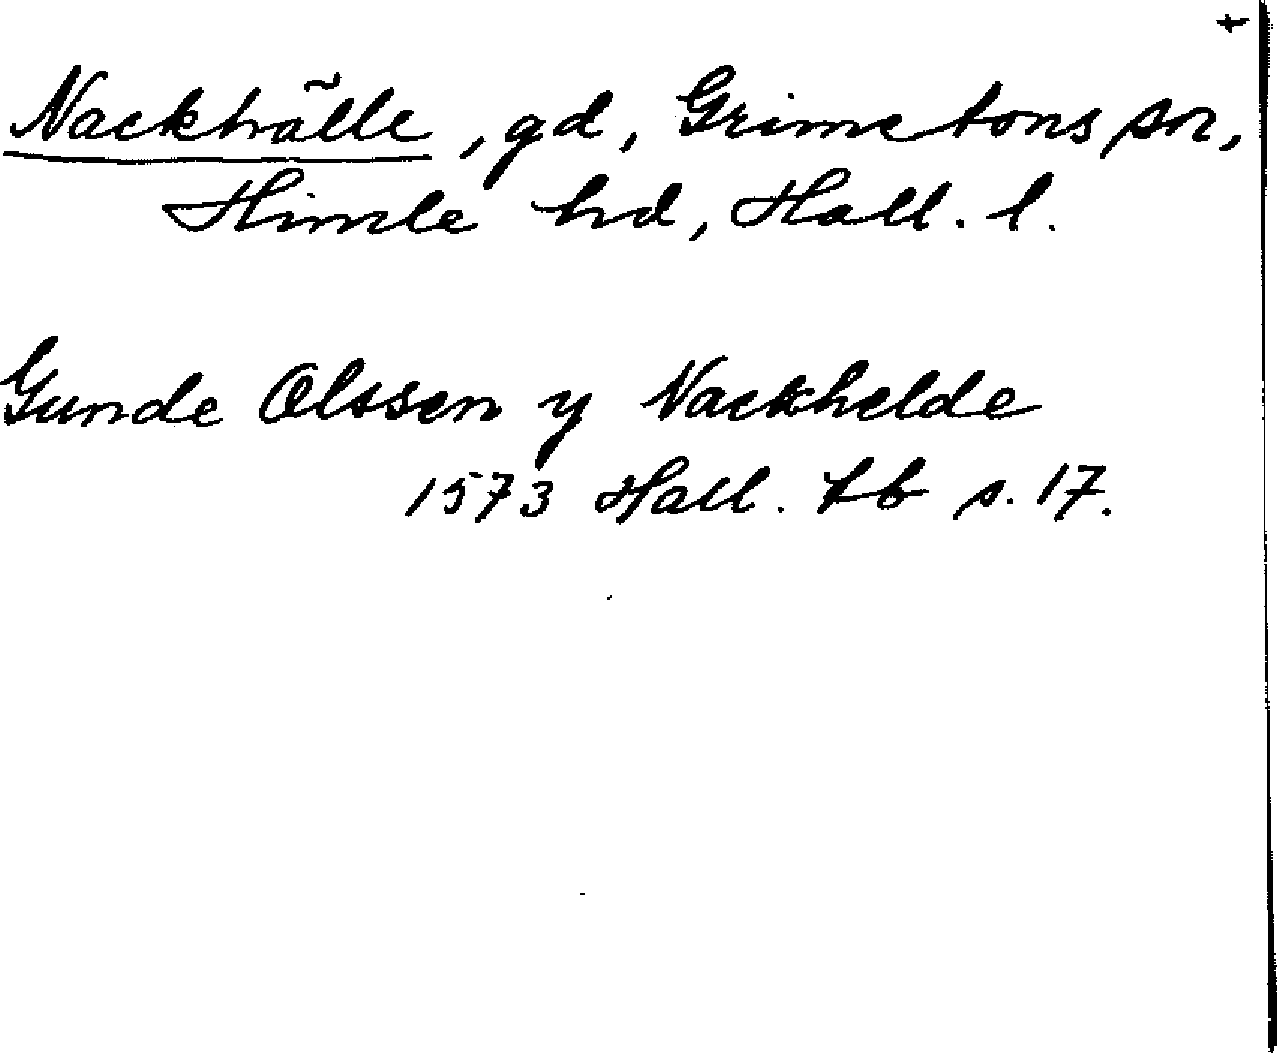 Nackhälle, gd, Grimetons sn,
Himle hd, Hall. l.
Gunde Olssen y Nackhelde
1573 Hall. tb s. 17.